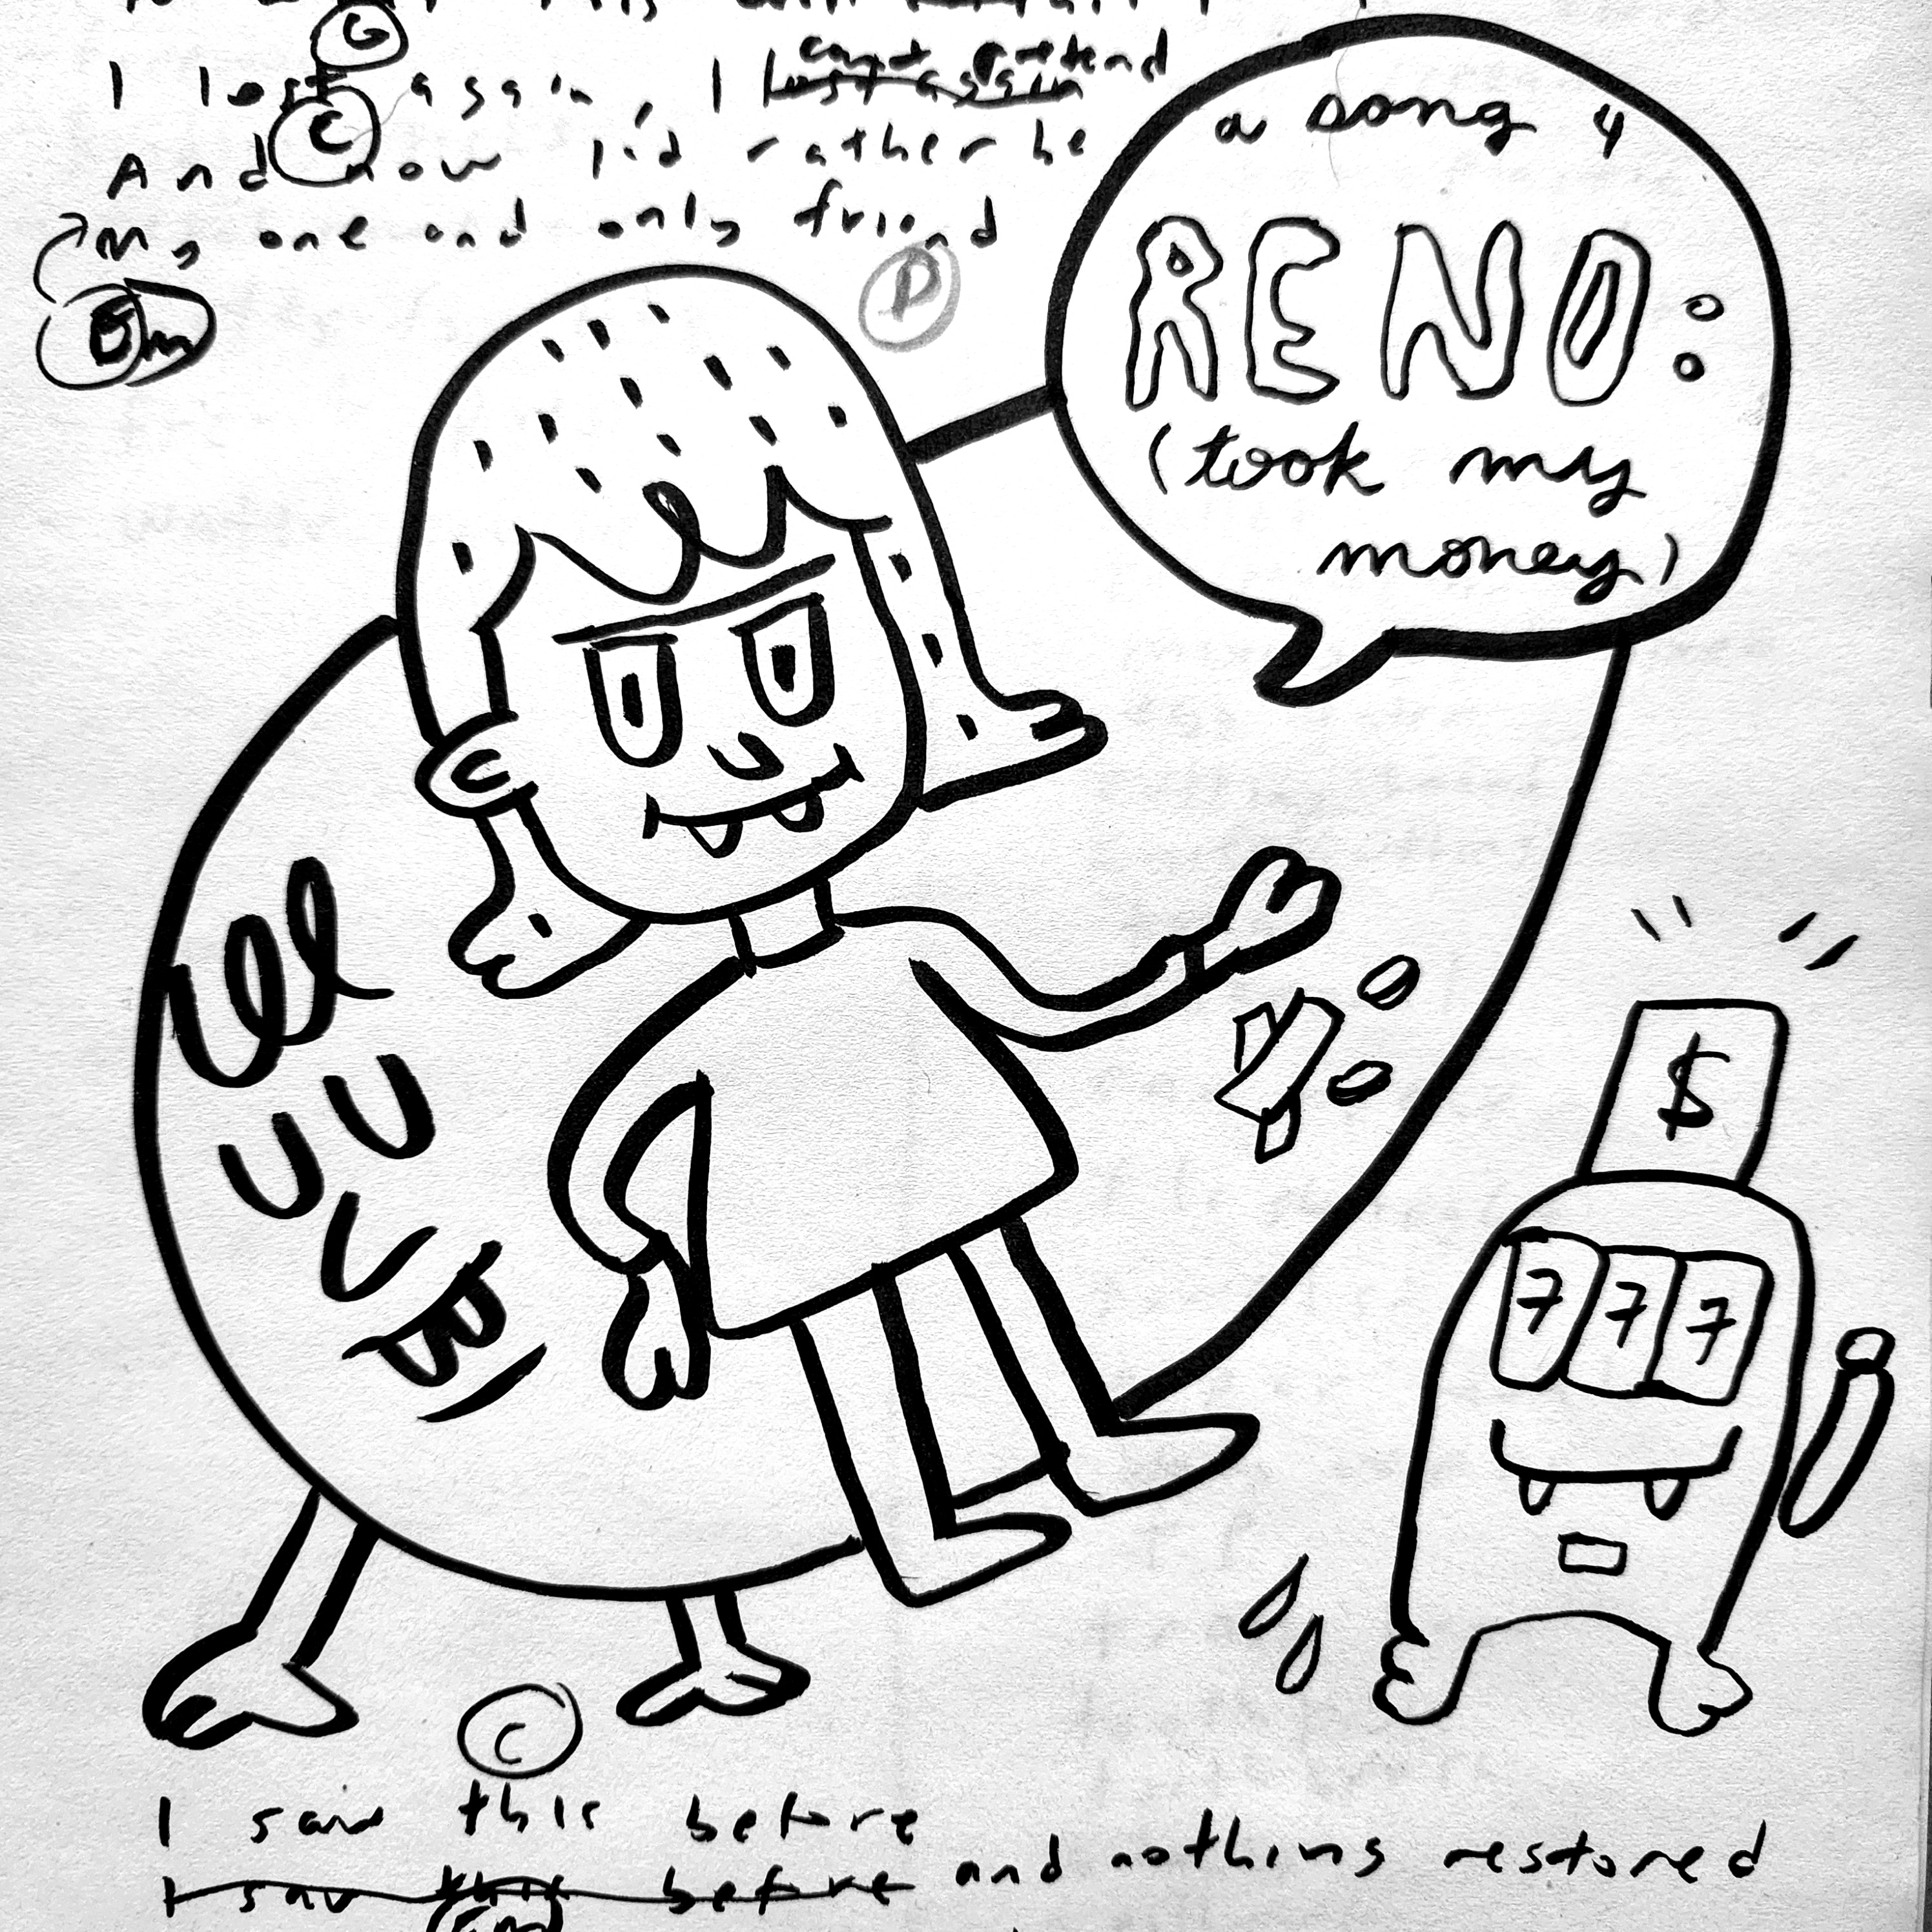 G
cant pretend
I lost again, I lost again
C
And now I'd rather be
My one and only friend
Em
D
a song 4
RENO:
(took my
money)
$
7 7 7
C
I saw this before
I saw this before and nothing restored